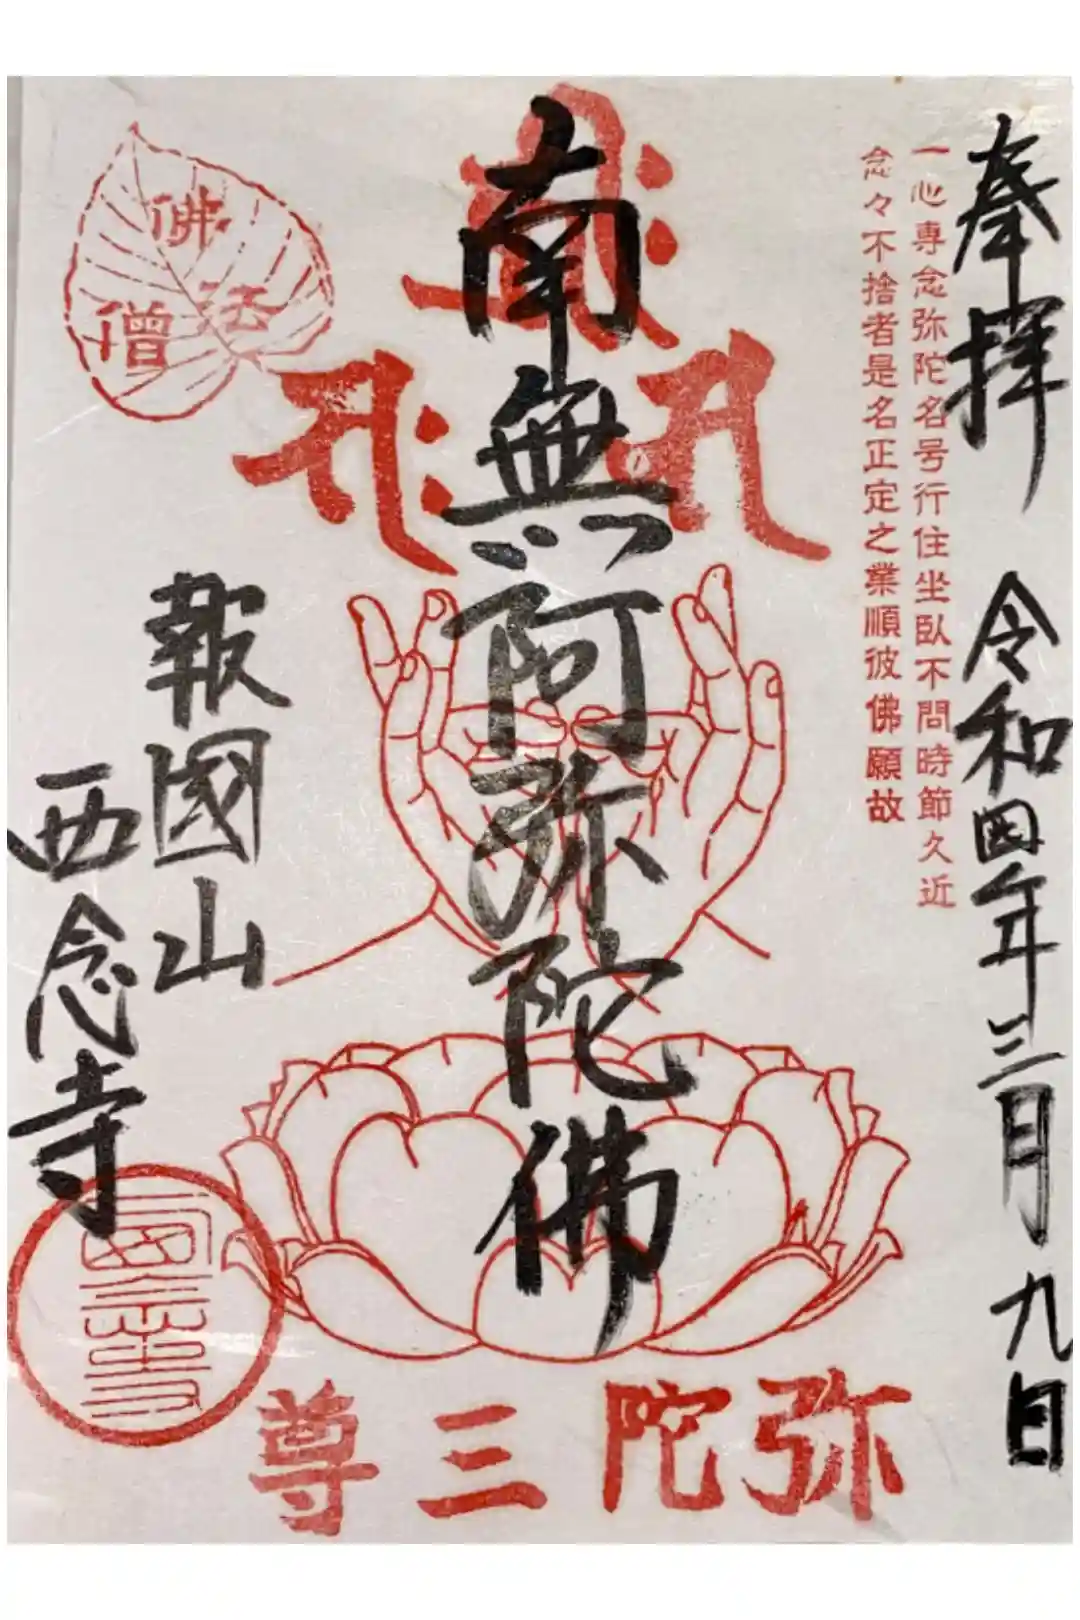 奉拝
令和四年三月九日
一心専念弥陀名号行住坐臥不問時節久近
念々不捨者是名正定之業順彼佛願故
南無阿弥陀佛
佛
法
僧
報國山
西念寺
西念寺
弥陀三尊